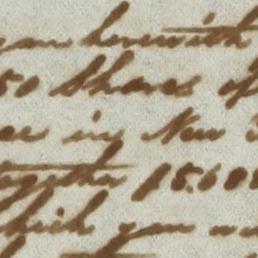 you herewith
50 Shares of
in New
together 15.600
which you